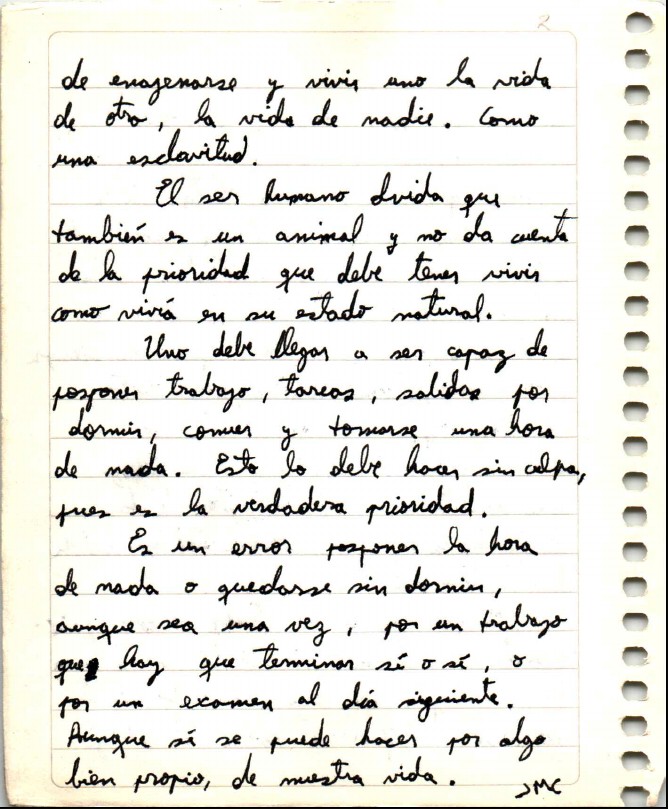 2
de enagenarse y vivir uno la vida
de otro, la vida de nadie. Como
una esclavitud.
El ser humano olvida que
también es un animal y no da cuenta
de la prioridad que debe tener vivir
como vivía en su estado natural.
Uno debe llegar a ser capaz de
posponer trabajo, tareas, salidas por
dormir, comer y tomarse una hora
de nada. Esto lo debe hacer sin culpa,
pues es la verdadera prioridad.
Es un error posponer la hora
de nada o quedarse sin dormir,
aunque sea una vez, por un trabajo
que hay que terminar sí o sí, o
por un examen al día siguiente.
Aunque sí se puede hacer por algo
bien propio, de nuestra vida.
JMC